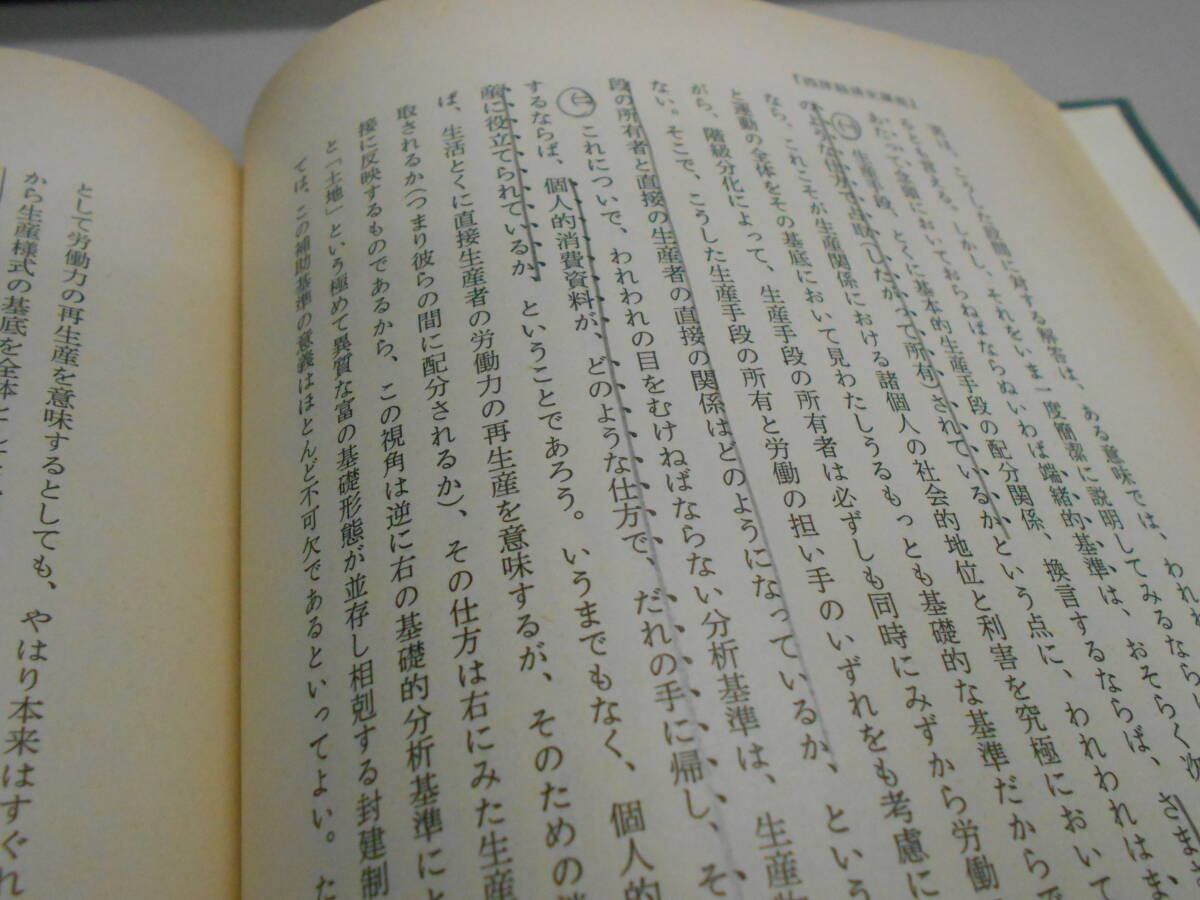 『西洋経済史講座』
書は、こうした設問に対する解答は、ある意味では、われわ
るとも言える。しかし、それをいま一度簡潔に説明してみるならば、
あたって、念頭においておらねばならぬいわば端緒的基準は、おそらく次
㈠ 生産手段、とくに基本的生産手段の配分関係、換言するならば、さま
のような仕方で占取(したがって所有)されているか、という点に、われわれはま
なら、これこそが生産関係における諸個人の社会的地位と利害を究極において
と運動の全体をその基底において見わたしうるもっとも基礎的な基準だからで
がら、階級分化によって、生産手段の所有者は必ずしも同時にみずから労働
ない。そこで、こうした生産手段の所有と労働の担い手のいずれをも考慮に
段の所有者と直接の生産者の直接の関係はどのようになっているか、という
㈡ これについで、われわれの目をむけねばならない分析基準は、生産物
するならば、個人的消費資料が、どのような仕方で、だれの手に帰し、そ
産に役立てられているか、ということであろう。いうまでもなく、個人的
ば、生活とくに直接生産者の労働力の再生産を意味するが、そのための
取されるか(つまり彼らの間に配分されるか)、その仕方は右にみた生産
接に反映するものであるから、この視角は逆に右の基礎的分析基準にと
と「土地」という極めて異質な富の基礎形態が並存し相剋する封建制
ては、この補助基準の意義はほとんど不可欠であるといってよい。た
として労働力の再生産を意味するとしても、やはり本来はすぐれ
から生産様式の基底を全体として